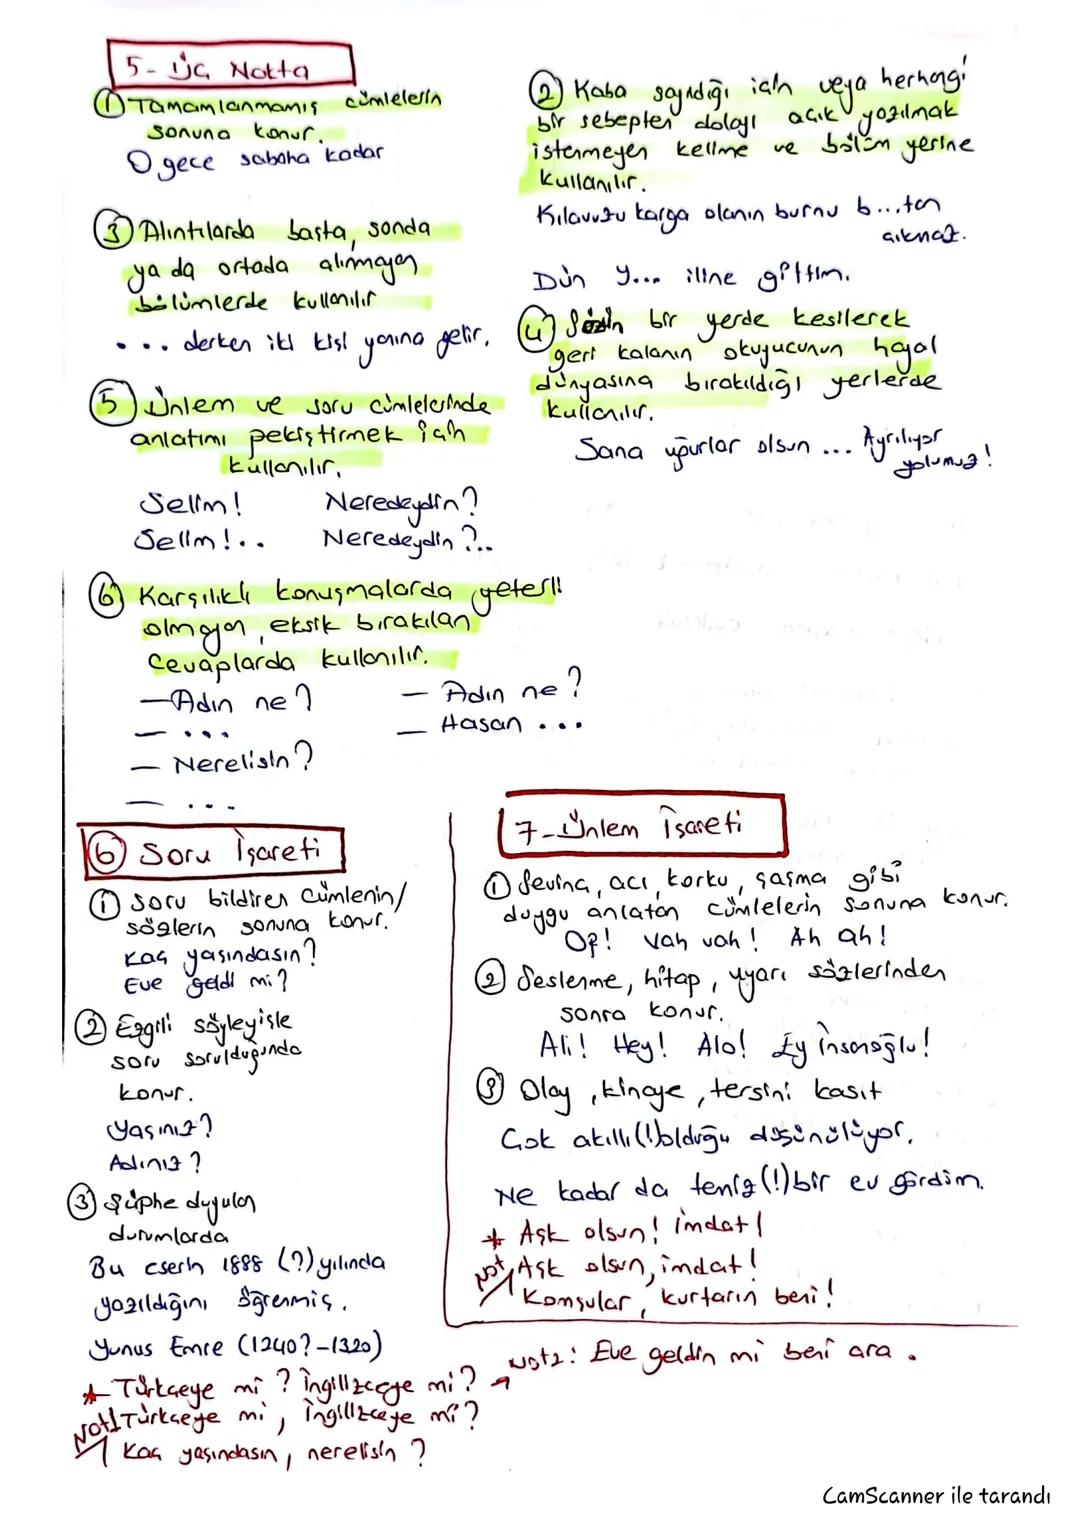 5- Üç Nokta
① Tamamlanmamış cümlelerin
sonuna konur.
O gece sabaha kadar
② Kaba sayıldığı için veya herhangi
bir sebepten dolayı açık yazılmak
istenmeyen kelime ve bölüm yerine
kullanılır.
Kılavuzu karga olanın burnu b...tan
çıkmaz.
Dün Y... iline gittim.
③ Alıntılarda başta, sonda
ya da ortada alınmayan
bölümlerde kullanılır
... derken iki kişi yanına gelir.
④ Sözün bir yerde kesilerek
geri kalanın okuyucunun hayal
dünyasına bırakıldığı yerlerde
kullanılır.
Sana uğurlar olsun ... Ayrılıyor
yolumuz!
⑤ Ünlem ve soru cümlelerinde
anlatımı pekiştirmek için
kullanılır.
Selim! Neredeydin?
Selim!.. Neredeydin?..
⑥ Karşılıklı konuşmalarda yeterli
olmayan, eksik bırakılan
cevaplarda kullanılır.
— Adın ne?
— ...
— Nerelisin?
— ...
— Adın ne?
— Hasan ...
⑥ Soru İşareti
① Soru bildiren cümlenin/
sözlerin sonuna konur.
Kaç yaşındasın?
Eve geldi mi?
② Ezgili söyleyişle
soru sorulduğunda
konur.
Yaşınız?
Adınız?
③ Şüphe duyulan
durumlarda
Bu eserin 1888 (?) yılında
yazıldığını öğrenmiş.
Yunus Emre (1240?-1320)
* Türkçeye mi? İngilizceye mi?
Not1 Türkçeye mi, İngilizceye mi?
Kaç yaşındasın, nerelisin?
Not2: Eve geldin mi beni ara.
7- Ünlem İşareti
① Sevinç, acı, korku, şaşma gibi
duygu anlatan cümlelerin sonuna konur.
Of! Vah vah! Ah ah!
② Seslenme, hitap, uyarı sözlerinden
sonra konur.
Ali! Hey! Alo! Ey insanoğlu!
③ Olay, kinaye, tersini kasıt
Çok akıllı(!) olduğu düşünülüyor.
Ne kadar da temiz(!) bir ev gördüm.
* Aşk olsun! imdat!
Not Aşk olsun, imdat!
Komşular, kurtarın beni!
CamScanner ile tarandı